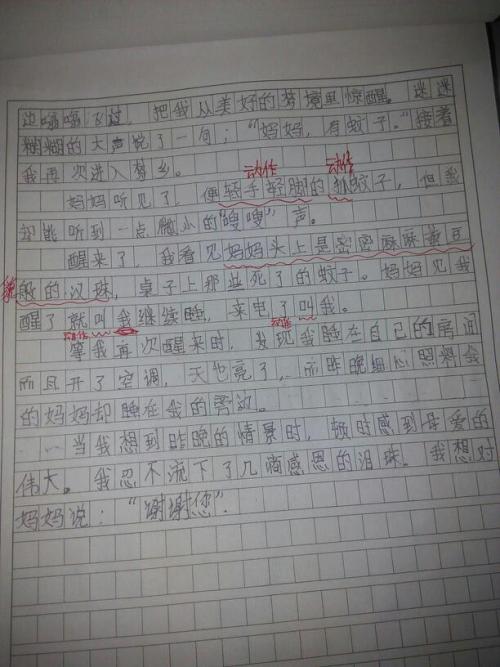 边嗡嗡飞过，把我从美好的梦境里惊醒。迷迷
糊糊的大声说了一句；“妈妈，有蚊子。”接着
我再次进入梦乡。
动作 动作
妈妈听见了，便轻手轻脚的抓蚊子，但我
却能听到一点微小的“嗖嗖”声。
醒来了，我看见妈妈头上是密密麻麻黄豆
般的汉珠，桌子上那些死了的蚊子。妈妈见我
醒了就叫我继续睡，来电了叫我。
动作
等我再次醒来时，发现我睡在自己的房间
而且开了空调，天也亮了，而昨晚细心照料会
的妈妈却睡在我的旁边。
当我想到昨晚的情景时，顿时感到母爱的
伟大。我忍不流下了几滴感恩的泪珠。我想对
妈妈说：“谢谢您”.